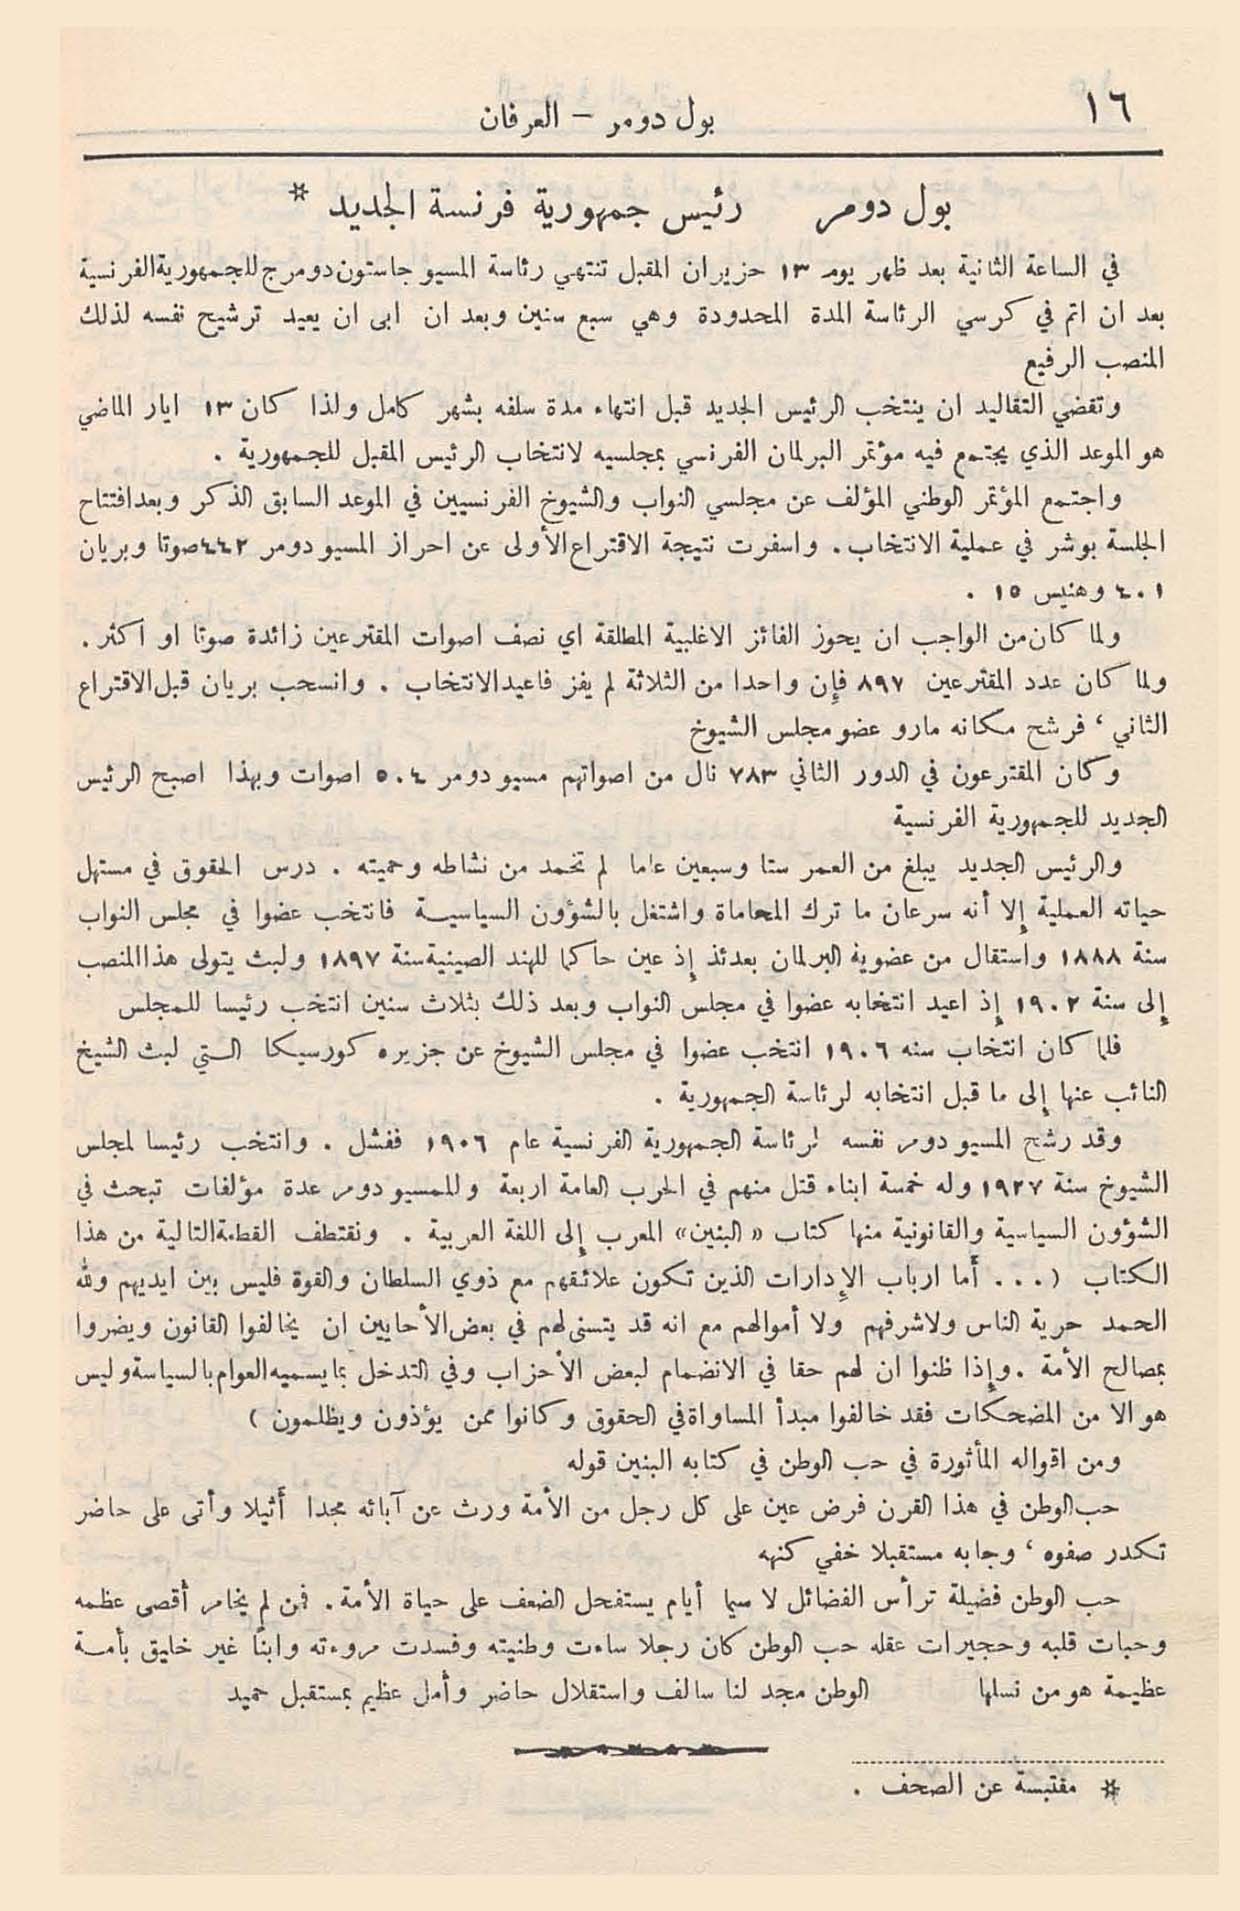 ١٦
بول دومر – العرفان
بول دومر رئيس جمهورية فرنسة الجديد *
في الساعة الثانية بعد ظهر يوم ١٣ حزيران المقبل تنتهي رئاسة المسيو جاستون دومرج للجمهورية الفرنسية
بعد ان اتم في كرسي الرئاسة المدة المحدودة وهي سبع سنين وبعد ان ابى ان يعيد ترشيح نفسه لذلك
المنصب الرفيع
وتقضي التقاليد ان ينتخب الرئيس الجديد قبل انتهاء مدة سلفه بشهر كامل ولذا كان ١٣ ايار الماضي
هو الموعد الذي يجتمع فيه مؤتمر البرلمان الفرنسي بمجلسيه لانتخاب الرئيس المقبل للجمهورية .
واجتمع المؤتمر الوطني المؤلف عن مجلسي النواب والشيوخ الفرنسيين في الموعد السابق الذكر وبعد افتتاح
الجلسة بوشر في عملية الانتخاب . واسفرت نتيجة الاقتراع الأولى عن احراز المسيو دومر ٤٤٢ صوتا وبريان
٤٠١ وهنيس ١٥ .
ولما كان من الواجب ان يحوز الفائز الاغلبية المطلقة اي نصف اصوات المقترعين زائدة صوتا او اكثر .
ولما كان عدد المقترعين ٨٩٧ فإن واحدا من الثلاثة لم يفز فاعيد الانتخاب . وانسحب بريان قبل الاقتراع
الثاني ، فرشح مكانه مارو عضو مجلس الشيوخ
وكان المقترعون في الدور الثاني ٧٨٣ نال من اصواتهم مسيو دومر ٥٠٤ اصوات وبهذا اصبح الرئيس
الجديد للجمهورية الفرنسية
والرئيس الجديد يبلغ من العمر ستا وسبعين عاما لم تخمد من نشاطه وحميته . درس الحقوق في مستهل
حياته العملية إلا أنه سرعان ما ترك المحاماة واشتغل بالشؤون السياسية فانتخب عضوا في مجلس النواب
سنة ١٨٨٨ واستقال من عضوية البرلمان بعدئذ إذ عين حاكما للهند الصينية سنة ١٨٩٧ ولبث يتولى هذا المنصب
إلى سنة ١٩٠٢ إذ اعيد انتخابه عضوا في مجلس النواب وبعد ذلك بثلاث سنين انتخب رئيسا للمجلس
فلما كان انتخاب سنه ١٩٠٦ انتخب عضوا في مجلس الشيوخ عن جزيره كورسيكا التي لبث الشيخ
النائب عنها إلى ما قبل انتخابه لرئاسة الجمهورية .
وقد رشح المسيو دومر نفسه لرئاسة الجمهورية الفرنسية عام ١٩٠٦ ففشل . وانتخب رئيسا لمجلس
الشيوخ سنة ١٩٢٧ وله خمسة ابناء قتل منهم في الحرب العامة اربعة وللمسيو دومر عدة مؤلفات تبحث في
الشؤون السياسية والقانونية منها كتاب « البنين » المعرب إلى اللغة العربية . ونقتطف القطعة التالية من هذا
الكتاب ( ... أما ارباب الإدارات الذين تكون علائقهم مع ذوي السلطان والقوة فليس بين ايديهم ولله
الحمد حرية الناس ولا شرفهم ولا أموالهم مع انه قد يتسنى لهم في بعض الأحايين ان يخالفوا القانون ويضروا
بمصالح الأمة . وإذا ظنوا ان لهم حقا في الانضمام لبعض الأحزاب وفي التدخل بما يسميه العوام بالسياسة وليس
هو الا من المضحكات فقد خالفوا مبدأ المساواة في الحقوق وكانوا ممن يؤذون ويظلمون )
ومن اقواله المأثورة في حب الوطن في كتابه البنين قوله
حب الوطن في هذا القرن فرض عين على كل رجل من الأمة ورث عن آبائه مجدا أثيلا وأتى على حاضر
تكدر صفوه ، وجابه مستقبلا خفي كنهه
حب الوطن فضيلة ترأس الفضائل لا سيما أيام يستفحل الضعف على حياة الأمة . فمن لم يخامر أقصى عظمه
وحبات قلبه وحجيرات عقله حب الوطن كان رجلا ساءت وطنيته وفسدت مروءته وابنًا غير خليق بأمة
عظيمة هو من نسلها الوطن مجد لنا سالف واستقلال حاضر وأمل عظيم بمستقبل حميد
* مقتبسة عن الصحف .